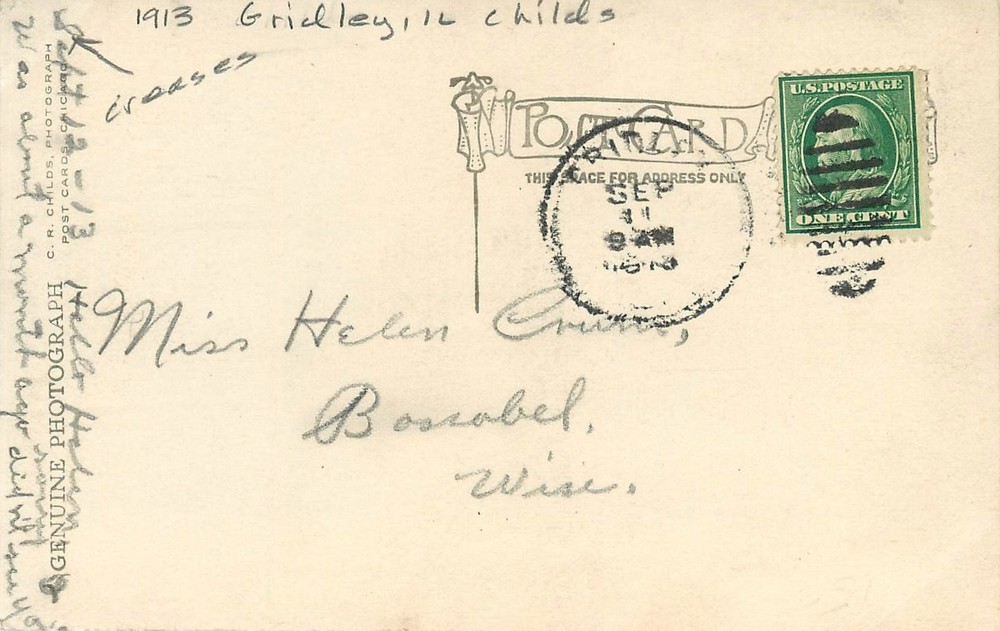 1913 Gridley, IL Childs
creases
POST CARD
THIS SPACE FOR ADDRESS ONLY
U.S. POSTAGE
ONE CENT
GRIDLEY
SEP
11
9 AM
1913
Miss Helen
Boscobel,
Wisc.
GENUINE PHOTOGRAPH
C. R. CHILDS, PHOTOGRAPH
POST CARDS, CHICAGO
Sept 12-13
Hello Helen
was about a month ago did